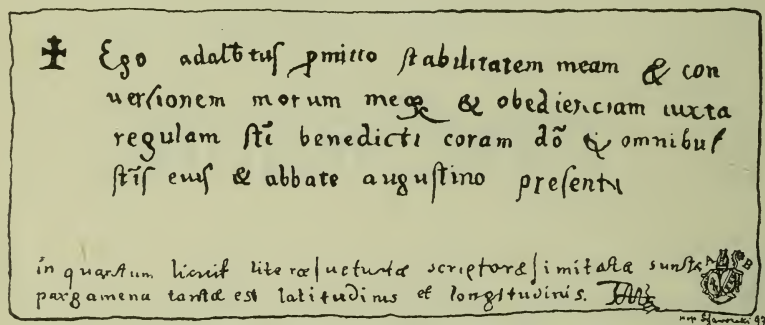 ✠ Ego adalb̄tus ꝓmitto stabilitatem meam & con
uersionem morum meoꝝ & obedienciam iuxta
regulam sti̅ benedicti coram do̅ & omnibus
sti̅s eius & abbate augustino presenti
in quantum licuit literæ uetustæ scriptoræ imitatæ sunt
pargamena tantæ est latitudinis et longitudinis.
A B